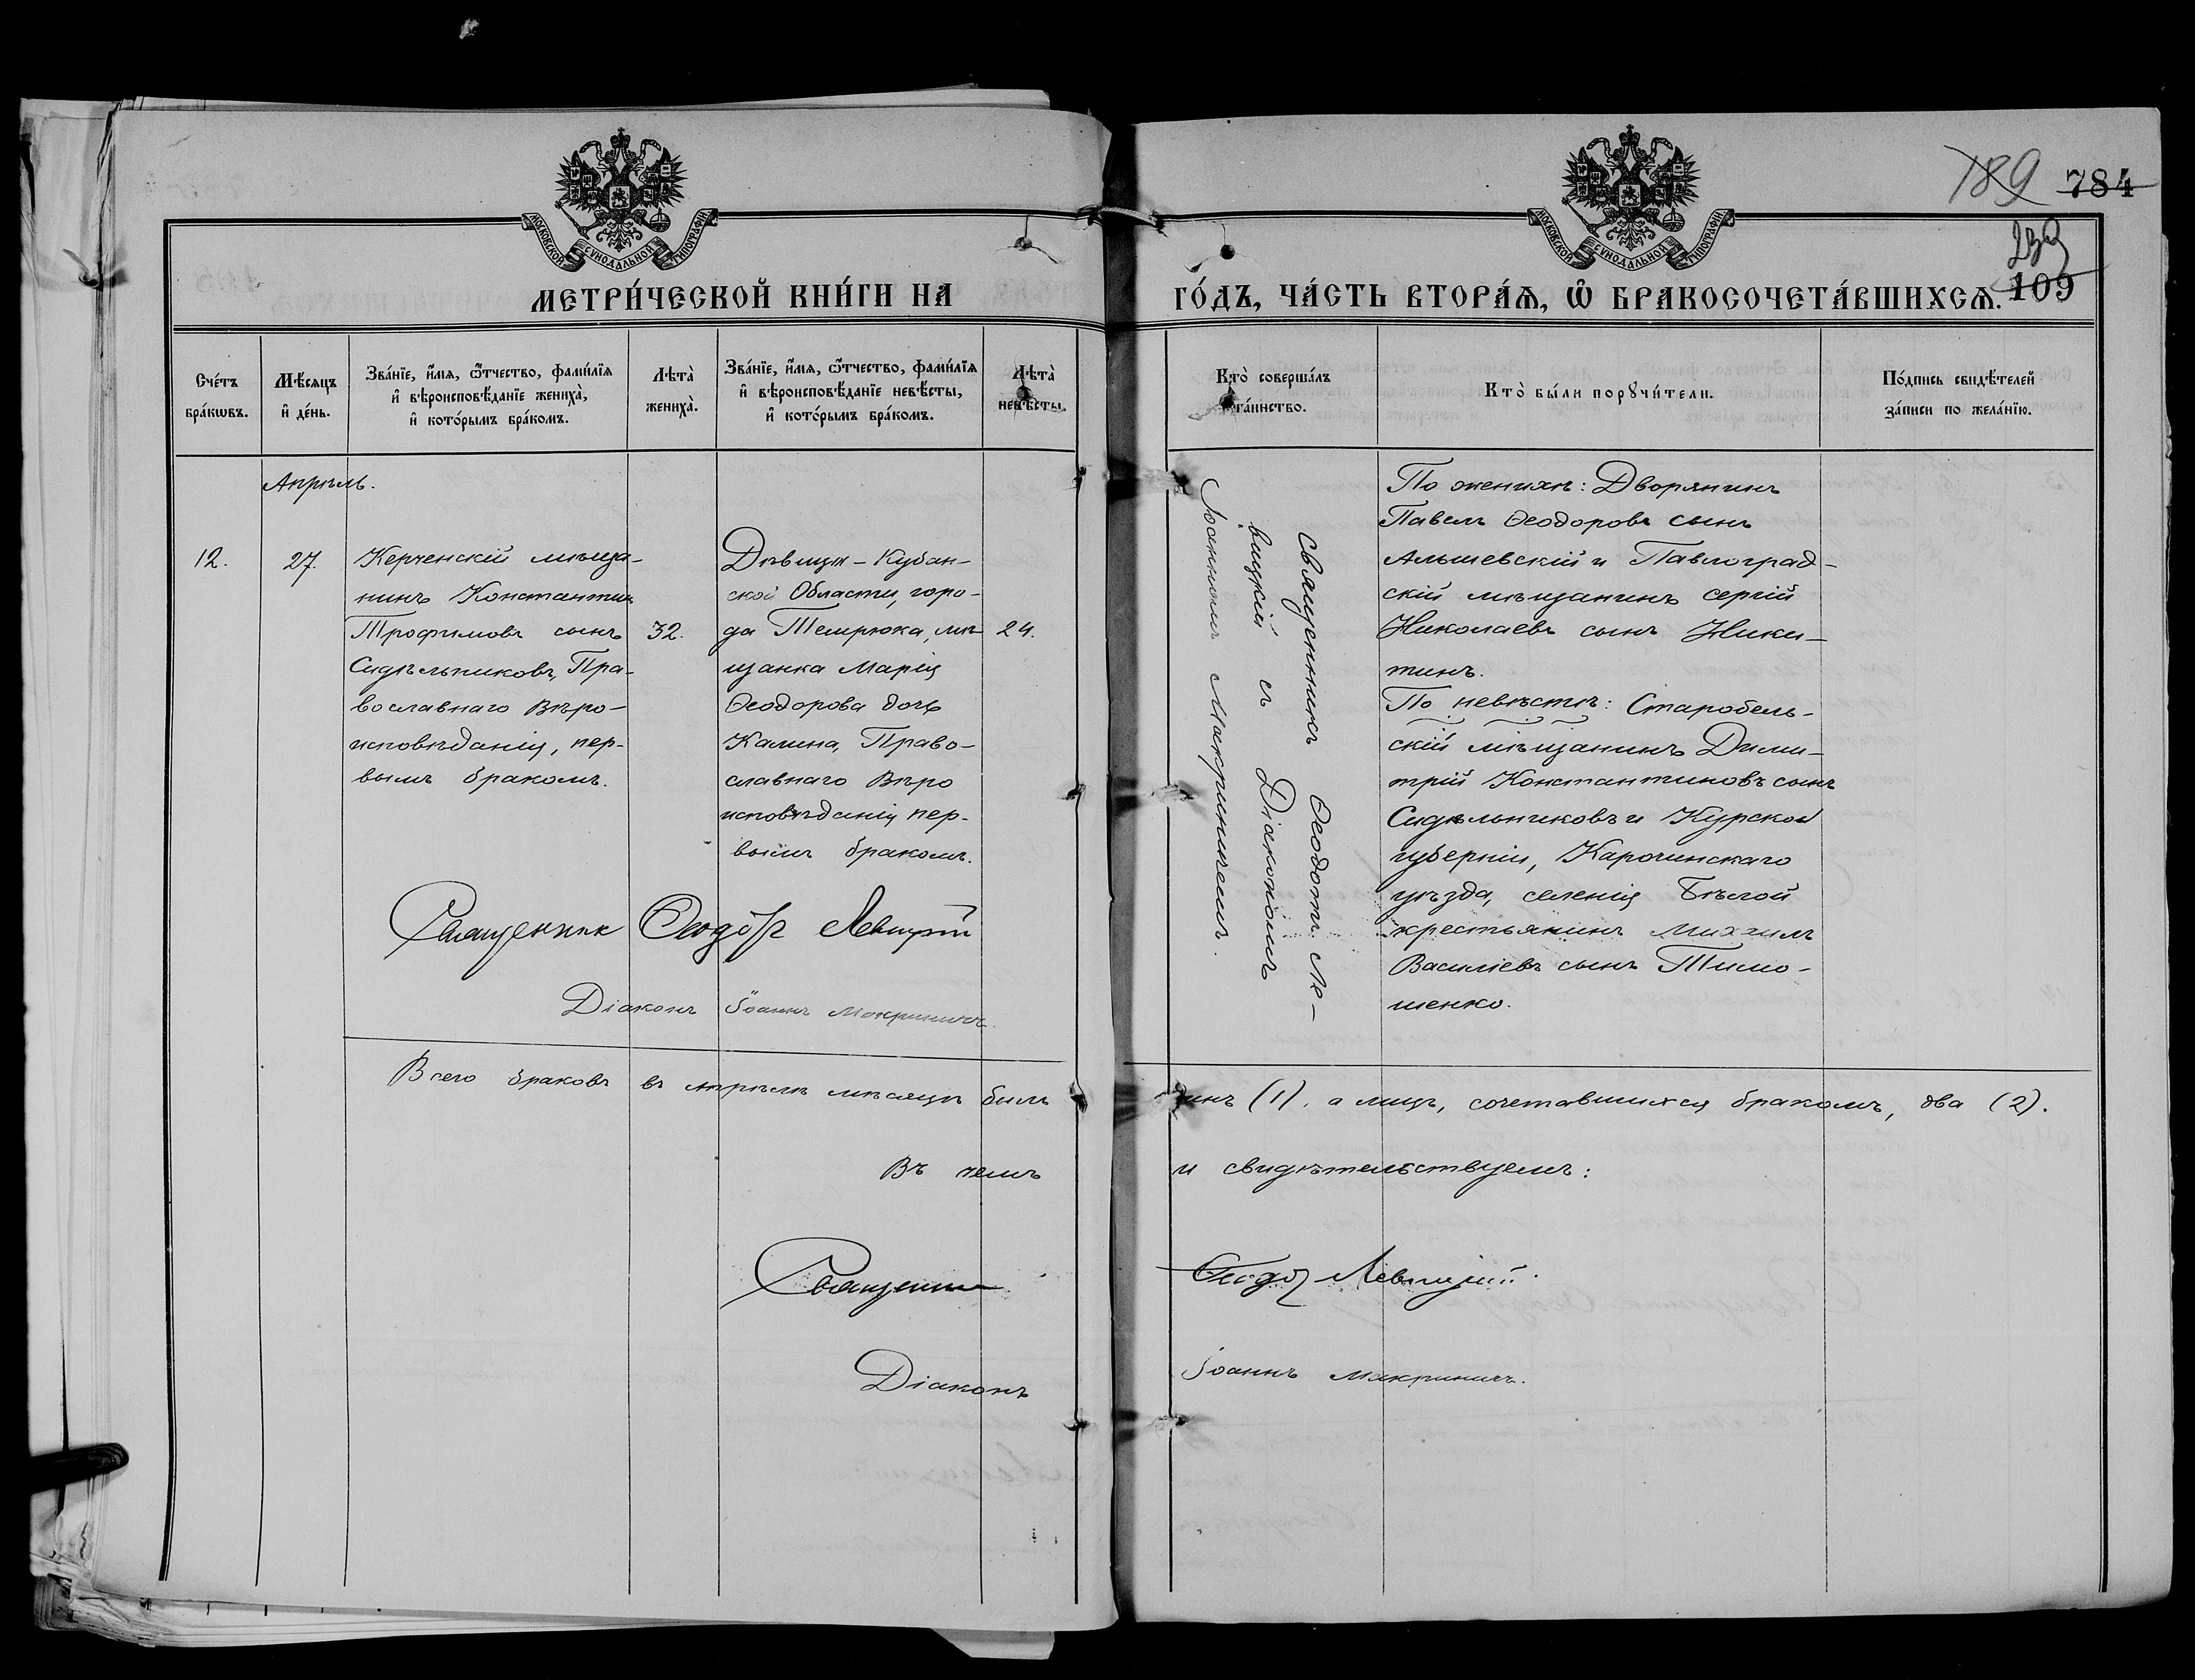 189 784
МОСКОВСКОЙ СѴНОДАЛЬНОЙ ТИПОГРАФІИ
МОСКОВСКОЙ СѴНОДАЛЬНОЙ ТИПОГРАФІИ
МЕТРИ́ЧЕСКОЙ КНИ́ГИ НА ГО́ДЪ, ЧА́СТЬ ВТОРА́Ѧ, Ѡ҆ БРАКОСОЧЕТА́ВШИХСѦ.
109
Сче́тъ
бра́кѡвъ.
Мѣ́сѧцъ
и҆ де́нь.
Зва́нїе, и҆́мѧ, ѻ҆́тчество, фами́лїѧ
и҆ вѣроисповѣ́данїе жениха̀,
и҆ кото́рымъ бра́комъ.
Лѣта̀
жениха̀.
Зва́нїе, и҆́мѧ, ѻ҆́тчество, фами́лїѧ
и҆ вѣроисповѣ́данїе невѣ́сты,
и҆ кото́рымъ бра́комъ.
Лѣта̀
невѣ́сты.
Кто̀ соверша́лъ
та́инство.
Кто̀ бы́ли порꙋчи́тели.
По́дпись свидѣ́телей
за́писи по жела́нїю.
Апрѣль.
12.
27.
Керченскій мѣща-
нинъ Константинъ
Трофимовъ сынъ
Сидѣльниковъ, Пра-
вославнаго Вѣро-
исповѣданія, пер-
вымъ бракомъ.
32.
Дѣвица - Кубан-
ской Области, горо-
да Темрюка, мѣ-
щанка Марія
Ѳеодорова дочь
Калина, Право-
славнаго Вѣро
исповѣданія пер-
вымъ бракомъ.
24.
Священникъ Ѳеодотъ Ле-
вицкій съ Діакономъ
Іоанномъ Макриничемъ.
По женихѣ: Дворянинъ
Павелъ Ѳеодоровъ сынъ
Алышевскій и Павлоград-
скій мѣщанинъ Сергій
Николаевъ сынъ Ники-
тинъ.
По невѣстѣ: Старобель-
скій мѣщанинъ Дими-
трій Константиновъ сынъ
Сидѣльниковъ и Курской
губерніи, Карочинскаго
уѣзда, селенія Бѣлой
крестьянинъ Михаилъ
Василіевъ сынъ Тимо-
шенко.
Священник Ѳеодотъ Левицкій
Діаконъ Іоаннъ Макриничъ.
Всего браковъ въ апрѣлѣ мѣсяцѣ былъ одинъ (1), а лицъ, сочетавшихся бракомъ, два (2).
Въ чемъ и свидѣтельствуемъ:
Священник Ѳеодотъ Левицкій.
Діаконъ Іоаннъ Макриничъ.